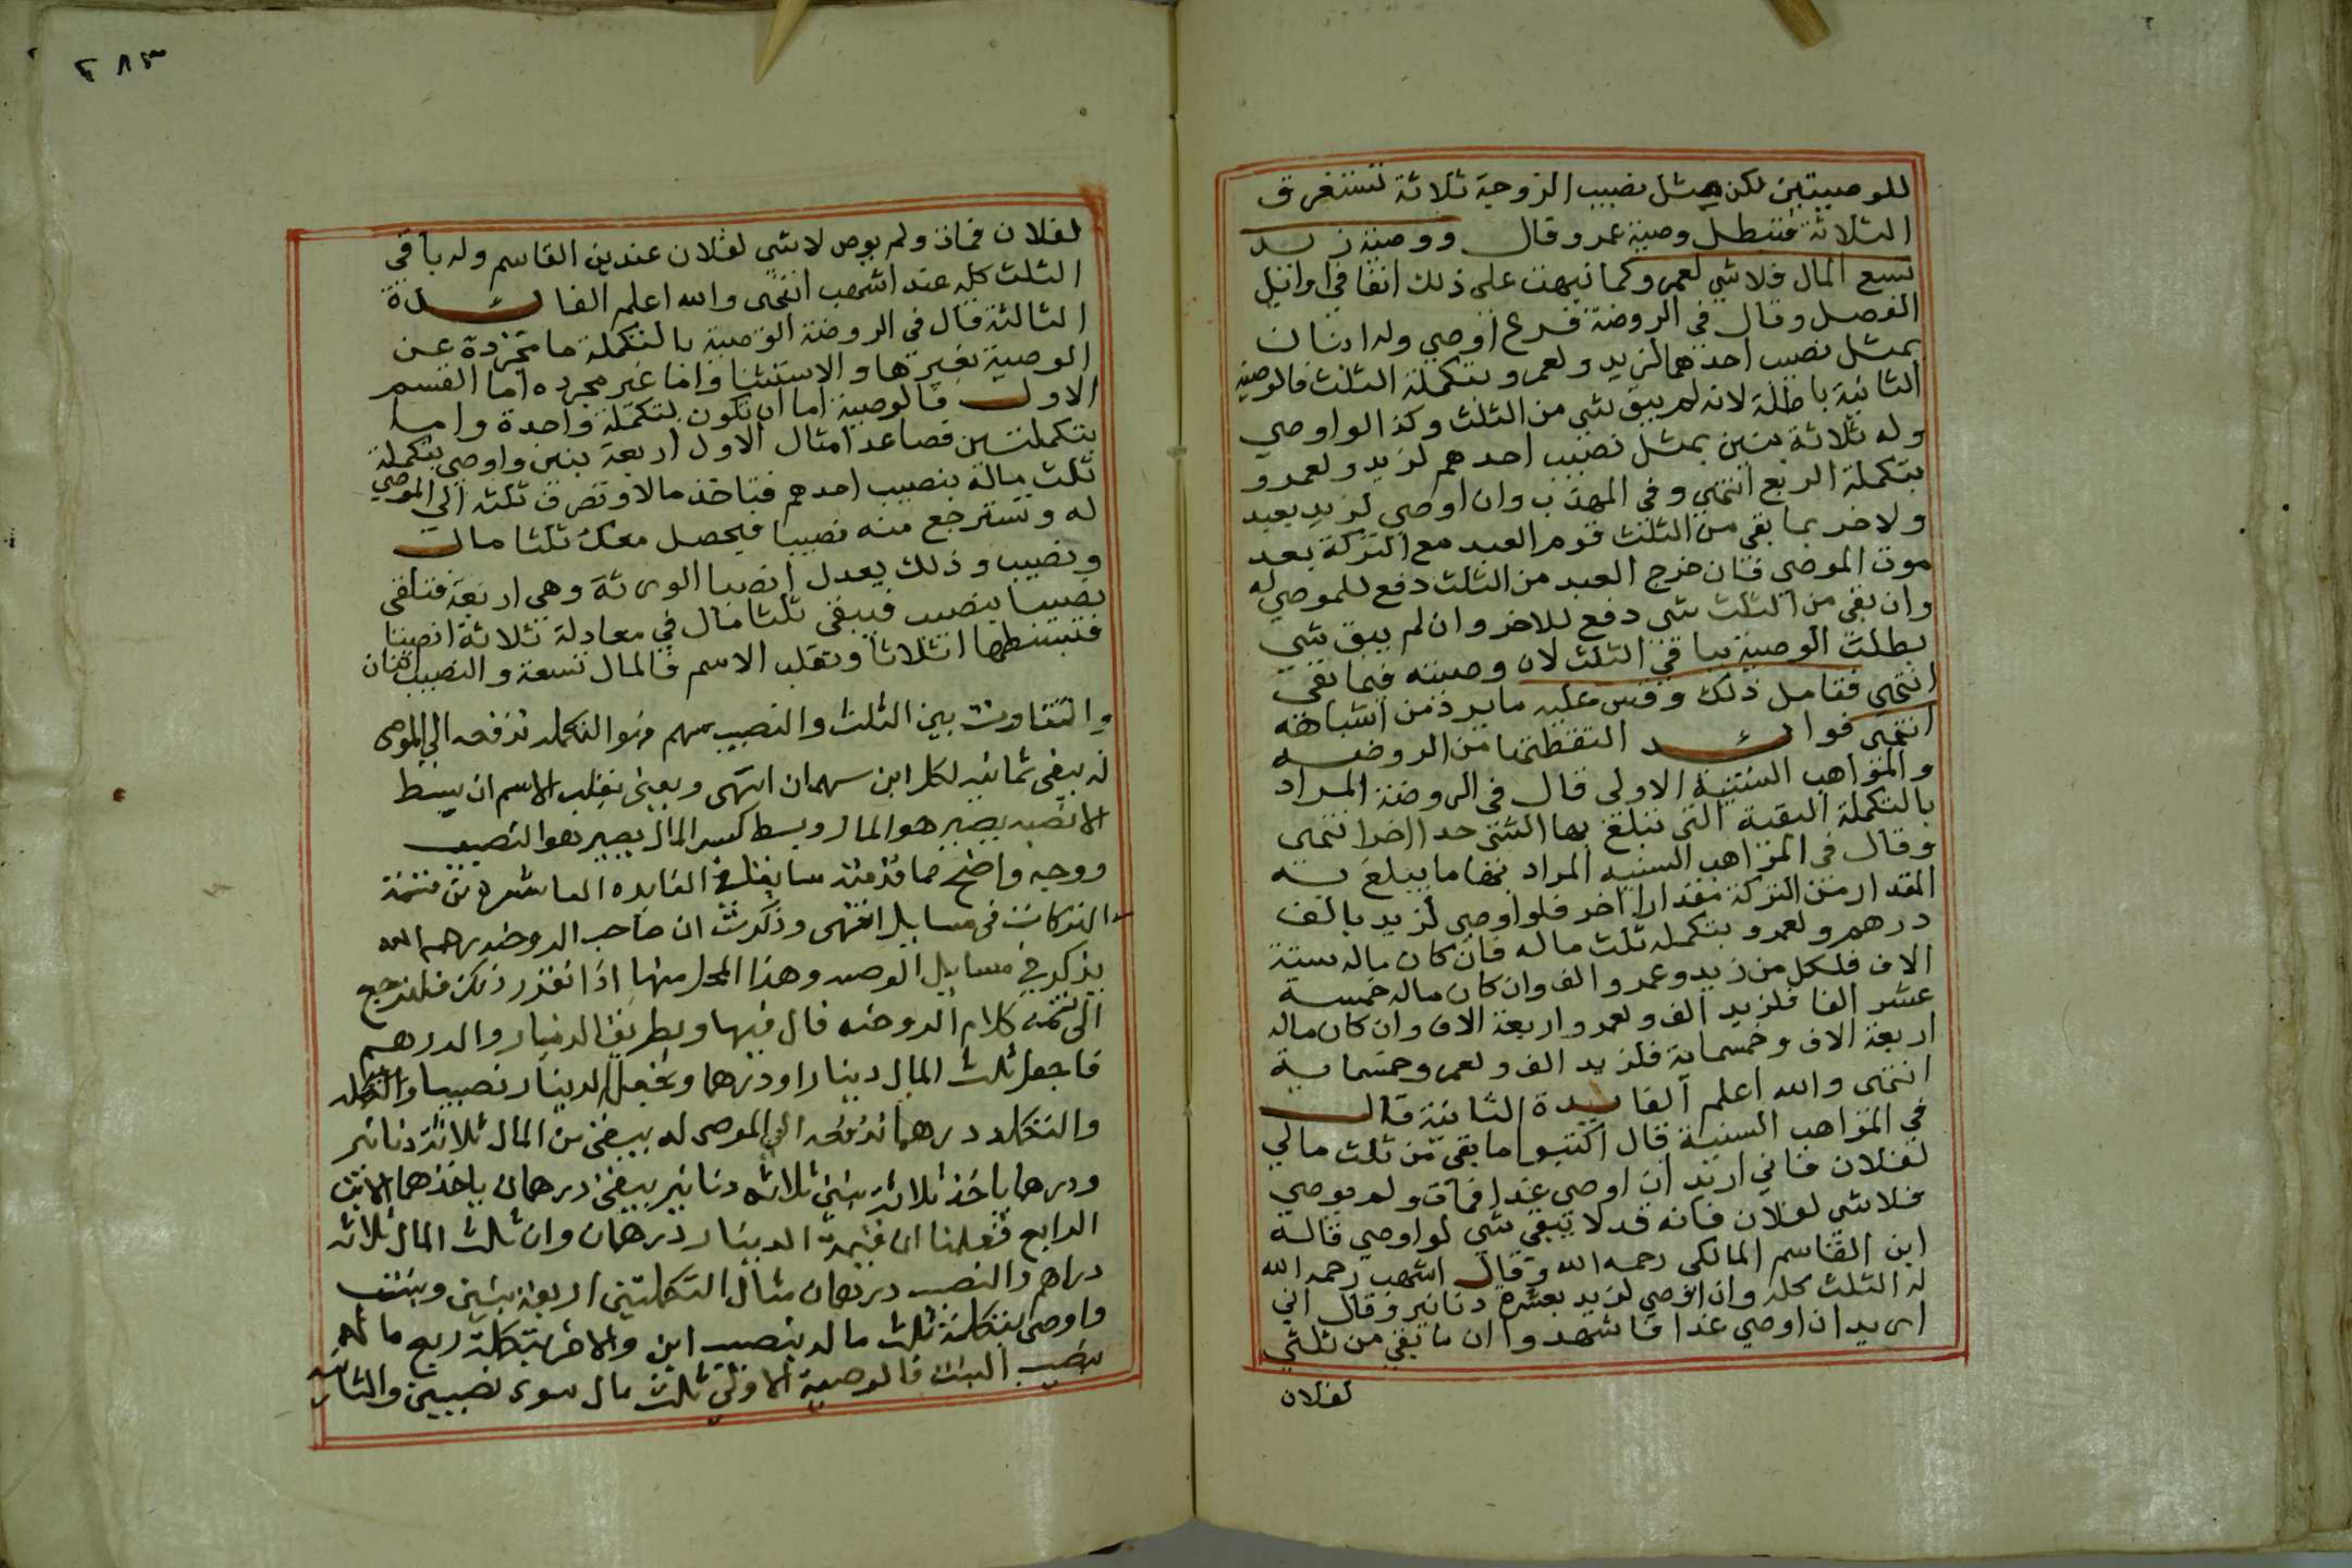 للوصيتين لكن مثل نصيب الزوجة ثلاثة تستغرق
الثلاثة فتبطل وصية عمرو وقال ووصية زيد
تسع المال فلا شي لعمرو كما نبهت على ذلك انفا في اوائيل
الفصل وقال في الروضة فرع اوصي وله ابنان
بمثل نصيب احدهما لزيد ولعمرو بتكملة الثلث فالوصية
الثانية باطلة لانه لم يبق شي من الثلث وكذا لو اوصي
وله ثلاثة بنين بمثل نصيب احدهم لزيد ولعمرو
بتكملة الربع انتهي وفي المهذب وان اوصي لزيد بعبد
ولاخر بما بقي من الثلث قوم العبد مع التركة بعد
موت الموصي فان خرج العبد من الثلث دفع للموصي له
وان بقي من الثلث شي دفع للاخر وان لم يبق شي
بطلت الوصية بباقي الثلث لان وصيته فيما بقي
انتهى فتامل ذلك وقس عليه ما يرد من اشباهه
انتهى فوائد التقطتها من الروضه
والمواهب السنية الاولى قال في الروضة المراد
بالتكملة البقية التي تبلغ بها الشي حدا اخر انتهى
وقال في المواهب السنيه المراد بها ما يبلغ به
المقدار من التركة مقدارا اخر فلو اوصي لزيد بالف
درهم ولعمرو بتكملة ثلث ماله فان كان ماله ستة
الاف فلكل من زيد وعمرو الف وان كان ماله خمسة
عشر الفا فلزيد الف ولعمرو اربعة الاف وان كان ماله
اربعة الاف وخمسماية فلزيد الف ولعمرو خمسماية
انتهى والله اعلم الفايدة الثانية قال
في المواهب السنية قال اكتبوا ما بقي من ثلث مالي
لفلان فاني اريد ان اوصي غدا فمات ولم يوصي
فلا شي لفلان فانه قد لا يبقي شي لو اوصي قاله
ابن القاسم المالكى رحمه الله وقال اشهب رحمه الله
له الثلث كله وان اوصي لزيد بعشرة دنانير وقال اني
اريد ان اوصي غدا فاشهدوا ان ما بقي من ثلثي
لفلان
٢٨٣
لفلان فمات ولم يوص لا شي لفلان عند بن القاسم وله باقي
الثلث كله عند اشهب انتهى والله اعلم الفائدة
الثالثة قال في الروضة الوصية بالتكملة اما مجردة عن
الوصية بغيرها والاستثنا واما غير مجرده اما القسم
الاول فالوصية اما ان تكون بتكملة واحدة واما
بتكملتين فصاعدا مثال الاول اربعة بنين واوصي بتكملة
ثلث ماله بنصيب احدهم فتاخذ مالا وتصرف ثلثه الي الموصي
له وتسترجع منه نصيبا فيحصل معك ثلثا مال
ونصيب وذلك يعدل انصبا الورثة وهي اربعة فتلقي
نصيبا بنصيب فيبقى ثلثا مال في معادلة ثلاثة انصبا
فتبسطها اثلاثا وتقلب الاسم فالمال تسعة والنصيب اثنان
والتفاوت بين الثلث والنصيب سهم وهو التكملة تدفعه الي الموصى
له يبقى ثمانيه لكل ابن سهمان انتهى ويعني بقلب الاسم ان يبسط
الانصبه يصير هو المال وبسط كسر المال يصير هو النصيب
ووجه واضح مما قدمته سابقا في الفايده العاشرة من تتمة
التركات في مسايل انتهى وذكرت ان صاحب الروضه رحمه الله
يذكر في مسايل الوصيه وهذا المحل منها اذا تقرر ذلك فلنرجع
الى تتمة كلام الروضه قال فيها وبطريق الدينار والدرهم
فاجعل ثلث المال دينارا ودرهما وتجعل الدينار نصيبا
والتكلمه درهما تدفعه الي الموصى له يبقى من المال ثلاثة دنانير
ودرهما ياخذ ثلاثة بنين ثلاثه دنانير يبقى درهمان ياخذهما الابن
الرابع فعلمنا ان قيمة الدينار درهمان وان ثلث المال ثلاثه
دراهم والنصيب درهمان مثال التكملتين اربعة بنين وبنت
واوصى بتكملة ثلث ماله بنصيب ابن والاخر بتكملة ربع ماله
بنصيب البنت فالوصية الاولى ثلث مال سوى نصيبين والثانيه